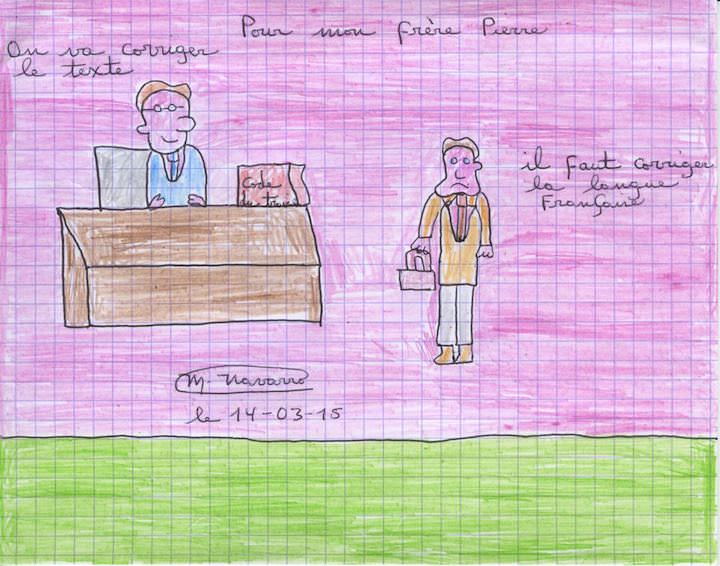 Pour mon frère Pierre
On va corriger
le texte
Code
du travail
il faut corriger
la langue
Française
M. Navarro
le 14-03-15